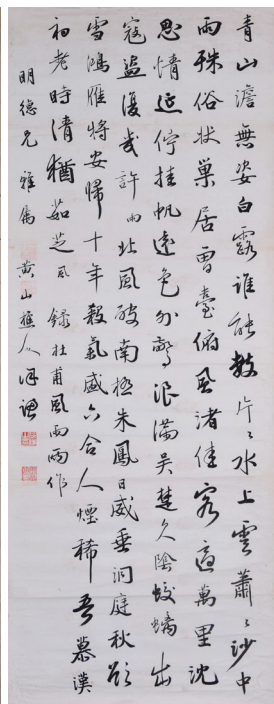 青山澹無姿白露誰能數片〻水上雲蕭〻沙中
雨殊俗狀巢居曾臺俯風渚佳客適萬里沈
思情延佇挂帆遠色外驚浪滿吳楚久陰蛟螭出
寇盜復幾許 雨 北風破南極朱鳳日威垂洞庭秋欲
雪鴻雁將安歸十年殺氣盛六合人煙稀吾慕漢
初老時清猶茹芝 風 錄杜甫風雨兩作
明德兄 雅屬 黃山樵人